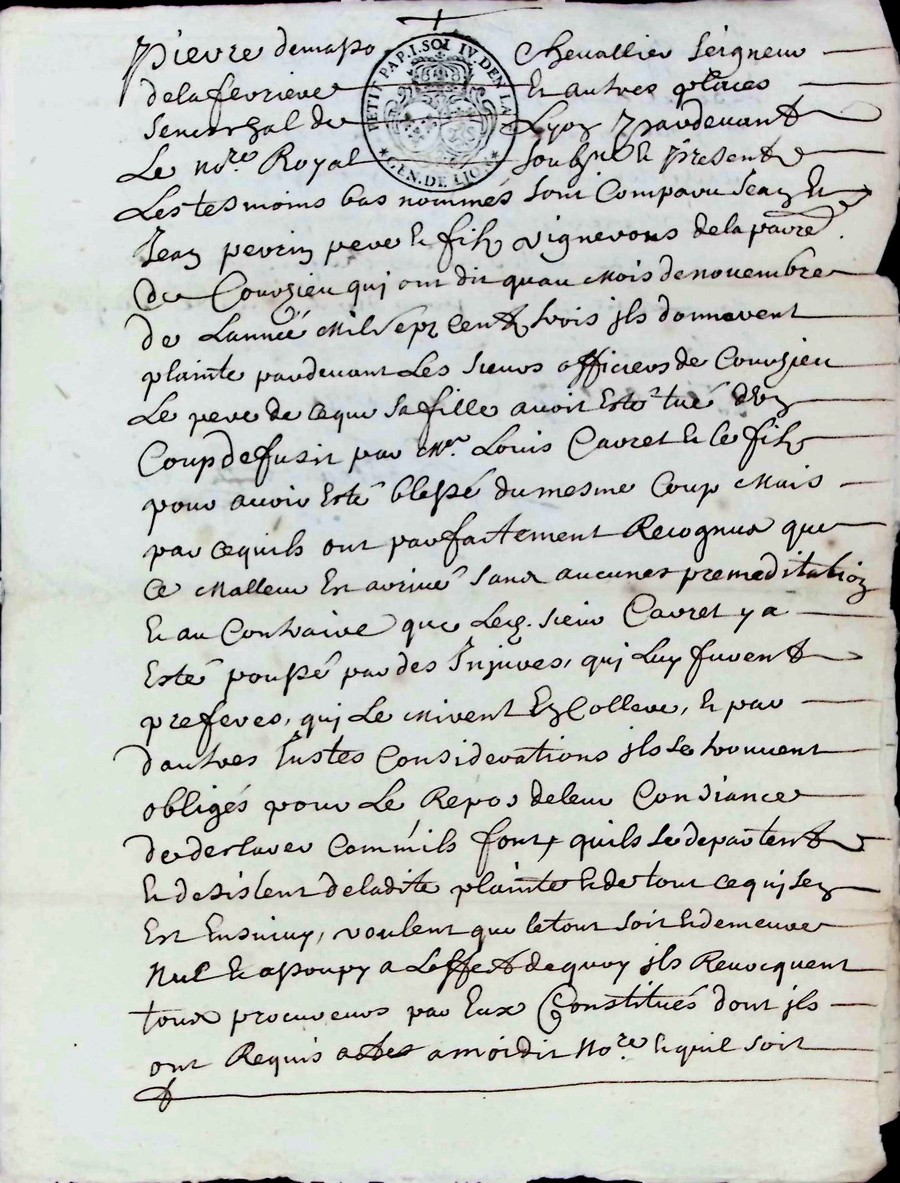 Pierre demasso Chevallier Seigneur
delaferriere Et autres places
Senerchal de Lyon Pardevant
Le nre Royal soubsne & Presents
Les tesmoins bas nommés sont Comparu Jean Et
Jean perrin pere & filz vignerons delaparre
De Courzieu qui ont dit quau Mois denovembre
de Lannéé Mil sept Cent trois jls donnerent
plainte pardevant Les sieurs officiers de Courzieu
Le pere de ceque safille avoit Esté tué dun
Coup defusit par Mr. Louis Carret & le filz
pour avoir Esté blessé du mesme Coup Mais
par cequils ont parfaitement Recognus que
Ce Malleur Est arrivé sans aucunes premeditation
& au Contraire que Led. sieur Carret y a
Esté poussé par des Injures, qui Luy furent
preferes, qui Le Mirent En Collere, & par
dautres Justes Considerations jls se trouvent
obligés pour Le Repos deleur Consiance
de desclarer Comm'ils font, quils se departent
& desistent deladite plainte & de tout cequi sen
Est Ensuivy, voulent que letout soit & demeure
Nul & assoupy a Leffect dequoy jls Revocquent
tous procureurs par Eux Constitués dont jls
ont Requis actes amoidit Nore. & quil soit
PETIT PAP. I. SOL IV. DEN. LA F.
GEN. DE LION